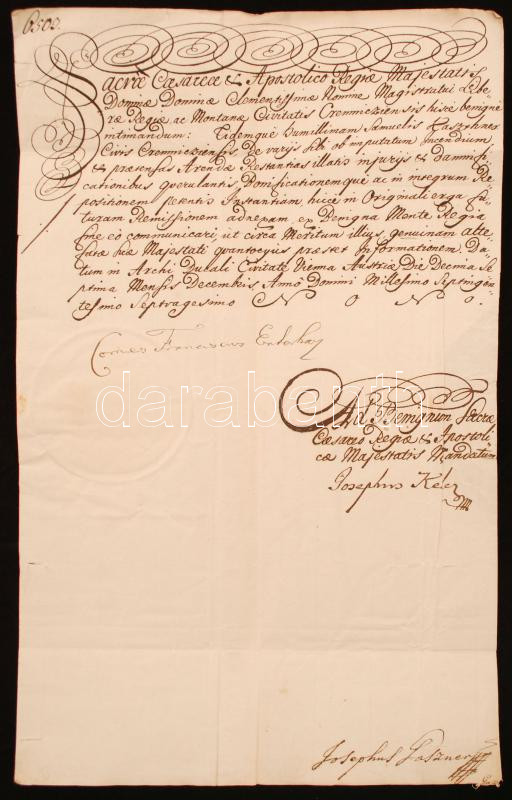 6503.
Sacræ Cæsareæ & Apostolico Regiæ Majestatis
Dominæ Dominæ Clementissimæ Nomine Magistratui Libe-
ræ Regiæ ac Montanæ Civitatis Cremniczensis hisce benigne
intimandum: Eidemque humillimam Samuelis
Civis Cremnicziensis De varijs sibi ob imputatum incendium
& prætensas Arendæ Restantias illatis injurijs & Damnifi-
cationibus querulantis, Bonificationemque ac in integrum Re-
positionem petentis Instantiam, hicce in Originali erga fu-
turam Remissionem adnexam ex Benigna Mente Regia
fine eo communicari, ut circa Meritum illius genuinam alte-
fatæ suæ Majestati quantocyus præstet Informationem. Da-
tum in Archi Ducali Civitate Vienna Austriæ Die Decima Se-
ptima Mensis Decembris, Anno Domini Millesimo Septingen-
tesimo Septuagesimo N o N o.
Comes Franciscus
Ad Benignum Sacræ
Cæsareo Regiæ & Apostoli-
cæ Majestatis Mandatum
Josephus
Josephus
darabanth